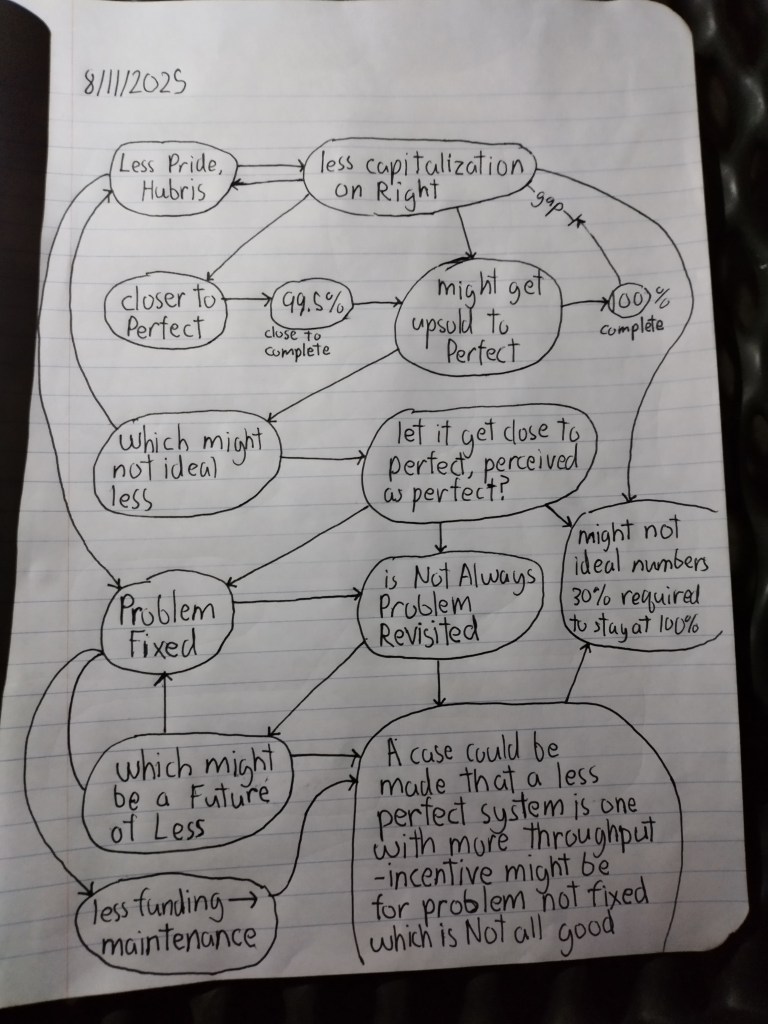 8/11/2025
Less Pride,
Hubris
less capitalization
on Right
gap
closer to
Perfect
99.5%
close to
complete
might get
upsold to
Perfect
100%
complete
which might
not ideal
less
let it get close to
perfect, perceived
as perfect?
might not
ideal numbers
30% required
to stay at 100%
Problem
Fixed
is Not Always
Problem
Revisited
which might
be a Future
of Less
A case could be
made that a less
perfect system is one
with more throughput
-incentive might be
for problem not fixed
which is Not all good
less funding→
maintenance